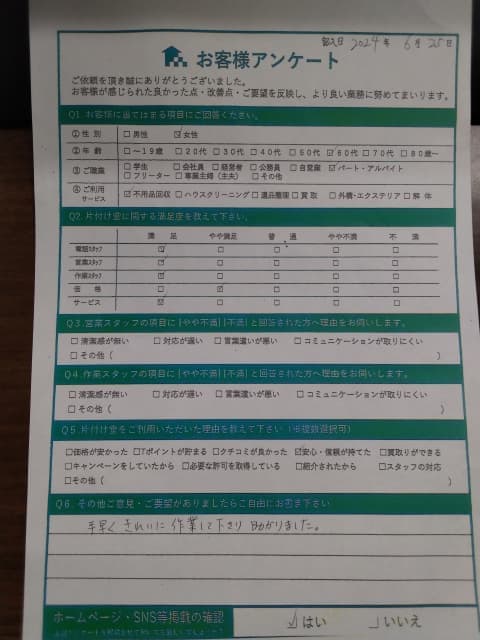 記入日 2024年 6月 25日
お客様アンケート
ご依頼を頂き誠にありがとうございました。
お客様が感じられた良かった点・改善点・ご要望を反映し、より良い業務に努めてまいります。
Q1.お客様に当てはまる項目にご回答ください。
①性 別 □男性 ☑女性
②年 齢 □～19歳 □20代 □30代 □40代 □50代 ☑60代 □70代 □80歳～
③ご職業 □学生 □会社員 □経営者 □公務員 □自営業 ☑パート・アルバイト
□フリーター □専業主婦(主夫) □その他
④ご利用サービス ☑不用品回収 □ハウスクリーニング □遺品整理 □買取 □外構・エクステリア □解体
Q2.片付け堂に関する満足度を教えて下さい。
満 足 やや満足 普 通 やや不満 不 満
電話スタッフ ☑ □ □ □ □
営業スタッフ ☑ □ □ □ □
作業スタッフ ☑ □ □ □ □
価 格 □ ☑ □ □ □
サービス ☑ □ □ □ □
Q3.営業スタッフの項目に[やや不満][不満]と回答された方へ理由をお伺いします。
□清潔感が無い □対応が遅い □言葉遣いが悪い □コミュニケーションが取りにくい
□その他( )
Q4.作業スタッフの項目に[やや不満][不満]と回答された方へ理由をお伺いします。
□清潔感が無い □対応が遅い □言葉遣いが悪い □コミュニケーションが取りにくい
□その他( )
Q5.片付け堂をご利用いただいた理由を教えて下さい(※複数選択可)
□価格が安かった □Tポイントが貯まる □クチコミが良かった ☑安心・信頼が持てた □買取りができる
□キャンペーンをしていたから □必要な許可を取得している □紹介されたから □スタッフの対応
□その他( )
Q6.その他ご意見・ご要望がありましたらご自由にお書き下さい
手早くきれいに作業して下さり助かりました。
ホームページ・SNS等掲載の確認 ☑はい □いいえ